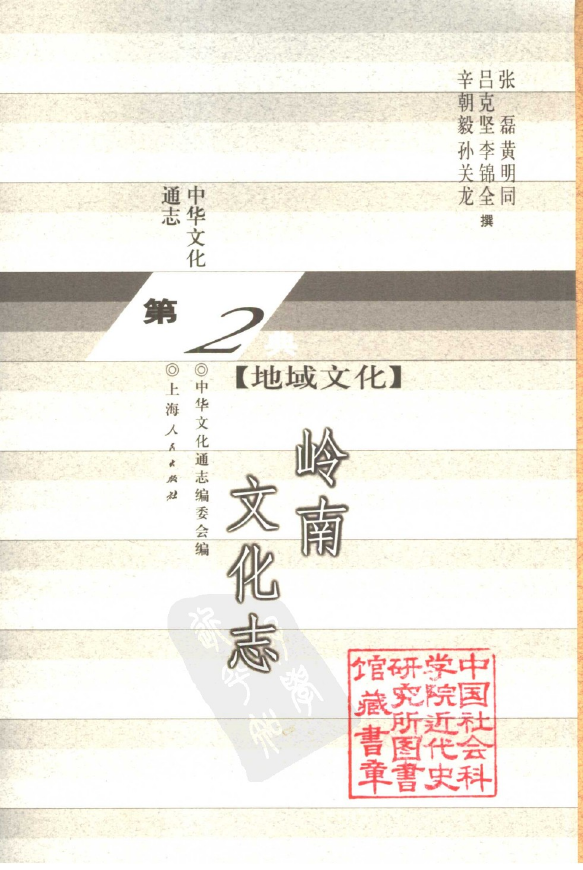 张磊 黄明同
吕克坚 李锦全 撰
辛朝毅 孙关龙
中华文化
通志
第2典
【地域文化】
岭南
文化志
◎中华文化通志编委会编
◎上海人民出版社
中国社会科
学院近代史
研究所图书
馆藏书章